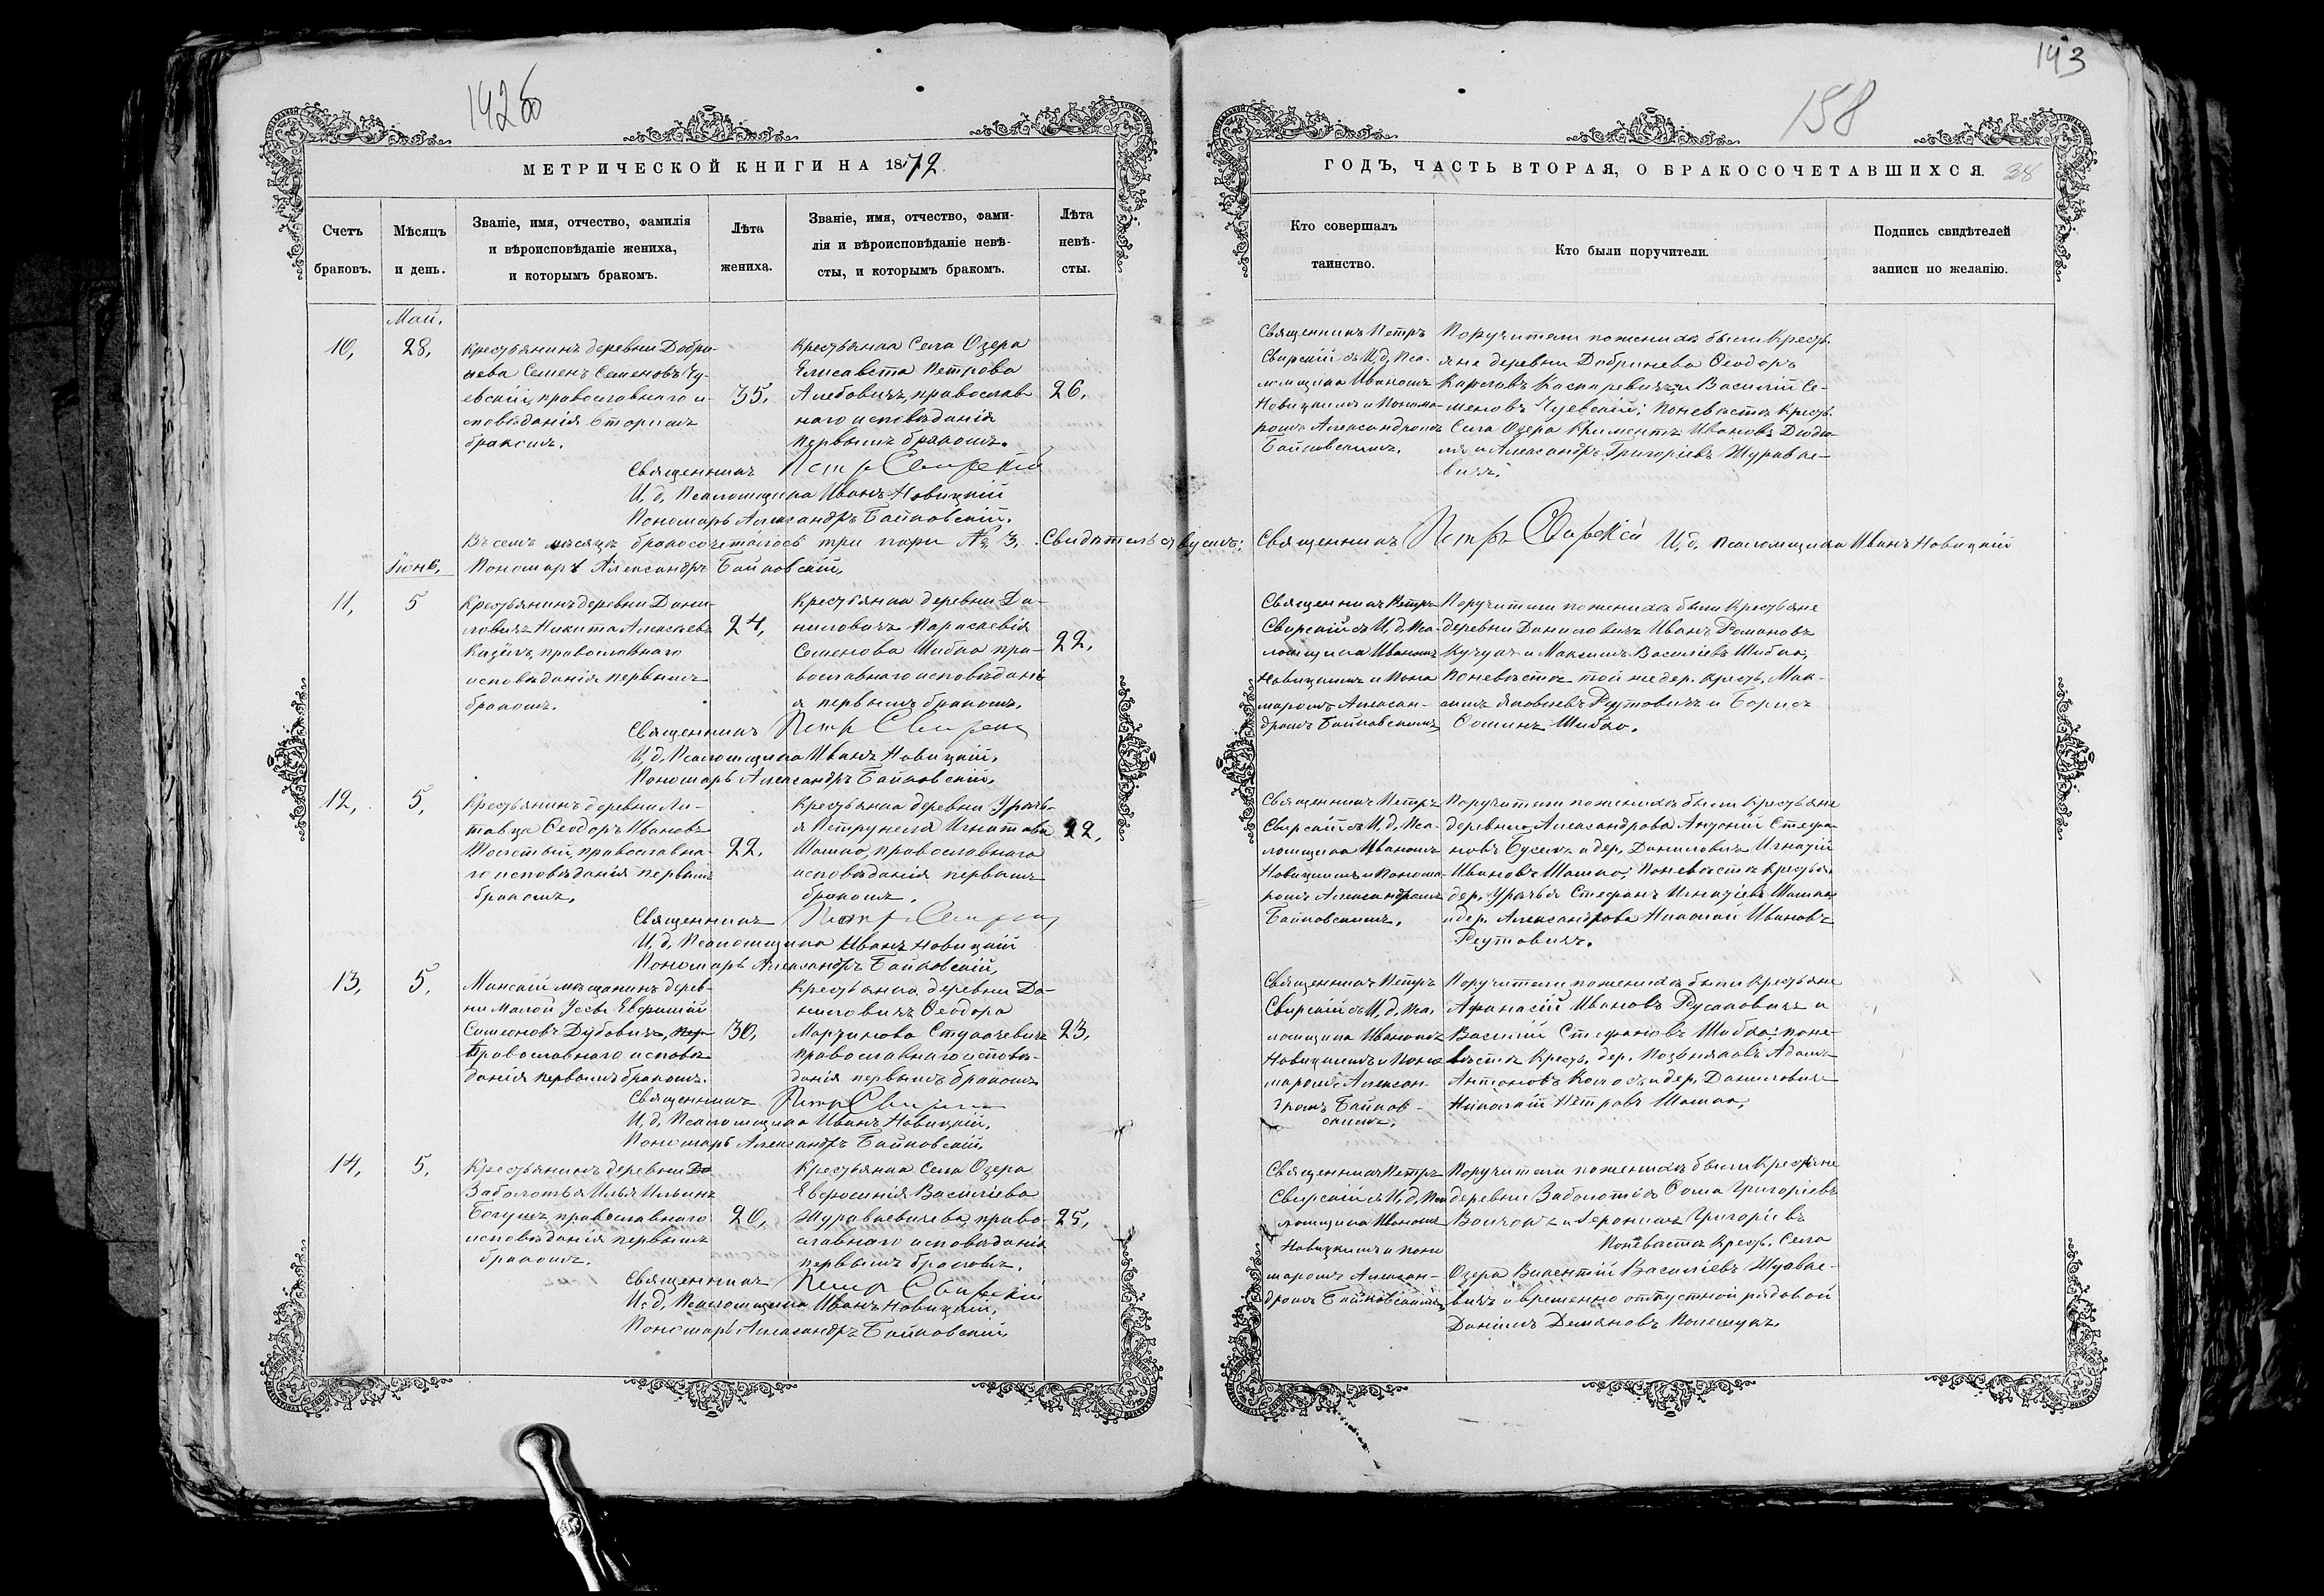 142об
МЕТРИЧЕСКОЙ КНИГИ НА 1872.
Счетъ браковъ.
Мѣсяцъ и день.
Званіе, имя, отчество, фамилія
и вѣроисповѣданіе жениха,
и которымъ бракомъ.
Лѣта
жениха.
Званіе, имя, отчество, фами-
лія и вѣроисповѣданіе невѣ-
сты, и которымъ бракомъ.
Лѣта
невѣ-
сты.
Май.
10, 28,
Крестьянинъ деревни Добри-
нева Семенъ Семеновъ Чу-
евскій, православнаго и-
сповѣданія вторымъ
бракомъ.
35.
Крестьянка Села Озера
Елисавета Петрова
Алебовичъ, православ-
наго исповѣданія
первымъ бракомъ.
26.
Священникъ Петръ Свирскій
И, д, Псаломщика Иванъ Новицкій
Пономарь Александръ Байковскій.
Въ семъ мѣсяцѣ бракосочеталось три пары № 3. Свидѣтельствуемъ:
Іюнь.
Пономарь Александръ Байковскій,
11, 5
Крестьянинъ деревни Дани-
ловичъ Никита Алексѣевъ
православнаго
исповѣданія первымъ
бракомъ.
24,
Крестьянка деревни Да-
ниловичъ Параскевія
Семенова Шибко пра-
вославнаго исповѣдані-
я первымъ бракомъ.
22,
Священникъ Петръ Свирскій
И, д, Псаломщика Иванъ Новицкій,
Пономарь Александръ Байковскій,
12, 5,
Крестьянинъ деревни Ли-
тавца Ѳеодоръ Ивановъ
Шолстый, православна-
го исповѣданія первымъ
бракомъ,
22.
Крестьянка деревни Уречь-
я Петрунеля Игнатова
Машко, православнаго
исповѣданія первымъ
бракомъ.
22,
Священникъ Петръ Свирскій
И, д, Псаломщика Иванъ Новицкій
Пономарь Александръ Байковскій,
13, 5.
Минскій мѣщанинъ дерев-
ни Малой Усы Евфимій
Симеоновъ Дубовикъ,
Православнаго исповѣ-
данія первымъ бракомъ.
30,
Крестьянка деревни Да-
ниловичъ Ѳеодора
Мартинова
православнаго исповѣ-
данія первымъ бракомъ
23,
Священникъ Петръ Свирскій
И, д, Псаломщика Иванъ Новицкій,
Пономарь Александръ Байковскій.
14, 5.
Крестьянинъ деревни До
Заболотья Илья Ильинъ
Богушъ православнаго
исповѣданія первымъ
бракомъ.
20,
Крестьянка Села Озера
Евфросинія Василіева
Журавлевичева право-
славнаго исповѣданія
первымъ бракомъ.
25,
Священникъ Петръ Свирскій
И, д, Псаломщика Иванъ Новицкій,
Пономарь Александръ Байковскій.
143
158
ГОДЪ, ЧАСТЬ ВТОРАЯ, О БРАКОСОЧЕТАВШИХСЯ. 38
Кто совершалъ
таинство.
Кто были поручители.
Подпись свидѣтелей
записи по желанію.
Священникъ Петръ
Свирскій съ И, д, Пса-
ломщика Иваномъ
Новицкимъ и Понома-
ромъ Александромъ
Байковскимъ.
Поручители по женихѣ были Кресть-
яне деревни Добринева Ѳеодоръ
Карловъ Каспаревичъ, и Василій Се-
меновъ Чуевскій; по невѣстѣ Кресть.
Села Озера Климентъ Ивановъ Дюдю-
ля и Александръ Григоріевъ Журавле-
вичъ;
Священникъ Петръ Свирскій И, д, Псаломщика Иванъ Новицкій
Священникъ Петръ
Свирскій съ И, д, Пса-
ломщика Иваномъ
Новицкимъ и Поно
маромъ Алексан-
дромъ Байковскимъ
Поручители по женихѣ были крестьяне
деревни Даниловичъ Иванъ Романовъ
Кучукъ и Максимъ Василіевъ Шибко,
По невѣстѣ той же дер. Кресть, Мак-
симъ Яковлевъ Реутовичъ и Борисъ
Ѳоминъ Шибко.
Священникъ Петръ
Свирскій съ И, д, Пса-
ломщика Иваномъ
Новицкимъ и Понома-
ромъ Александромъ
Байковскимъ.
Поручители по женихѣ были Крестьяне
деревни Александрова Антоній Стефа-
новъ Буселъ и дер, Даниловичъ Игнатій
Ивановъ Машко; По невѣстѣ крестья.
дер, Уречья Стефанъ Игнатіевъ Машко
и дер, Александрова Николай Ивановъ
Реутовичъ.
Священникъ Петръ
Свирскій съ И, д, Пса,
ломщика Иваномъ
Новицкимъ и Поно
маромъ Алексан-
дромъ Байков-
скимъ,
Поручители по женихѣ были Крестьяне
Афанасій Ивановъ Русаковичъ и
Василій Стефановъ Шибко; по не-
вѣстѣ Кресть, дер, Позняковъ Адамъ
Антоновъ Колосъ и дер, Даниловичъ
Николай Петровъ Машко,
Священникъ Петръ
Свирскій съ И, д, Пса
ломщика Иваномъ
Новицкимъ и Поно
маромъ Алексан-
дромъ Байковскимъ
Поручители по женихѣ были Крестьяне
деревни Заболотья Ѳома Григоріевъ
Волчокъ и Іеронимъ Григоріевъ
По невѣстѣ Кресть. Села
Озера Викентій Василіевъ Журавле-
вичъ и временно отпустной рядовой
Даніилъ Демяновъ Полещукъ.